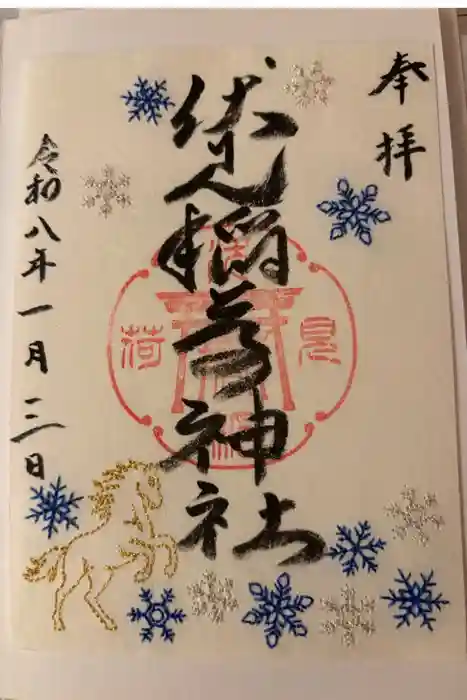 奉拝
伏見稲荷神社
令和八年一月三日
見
荷